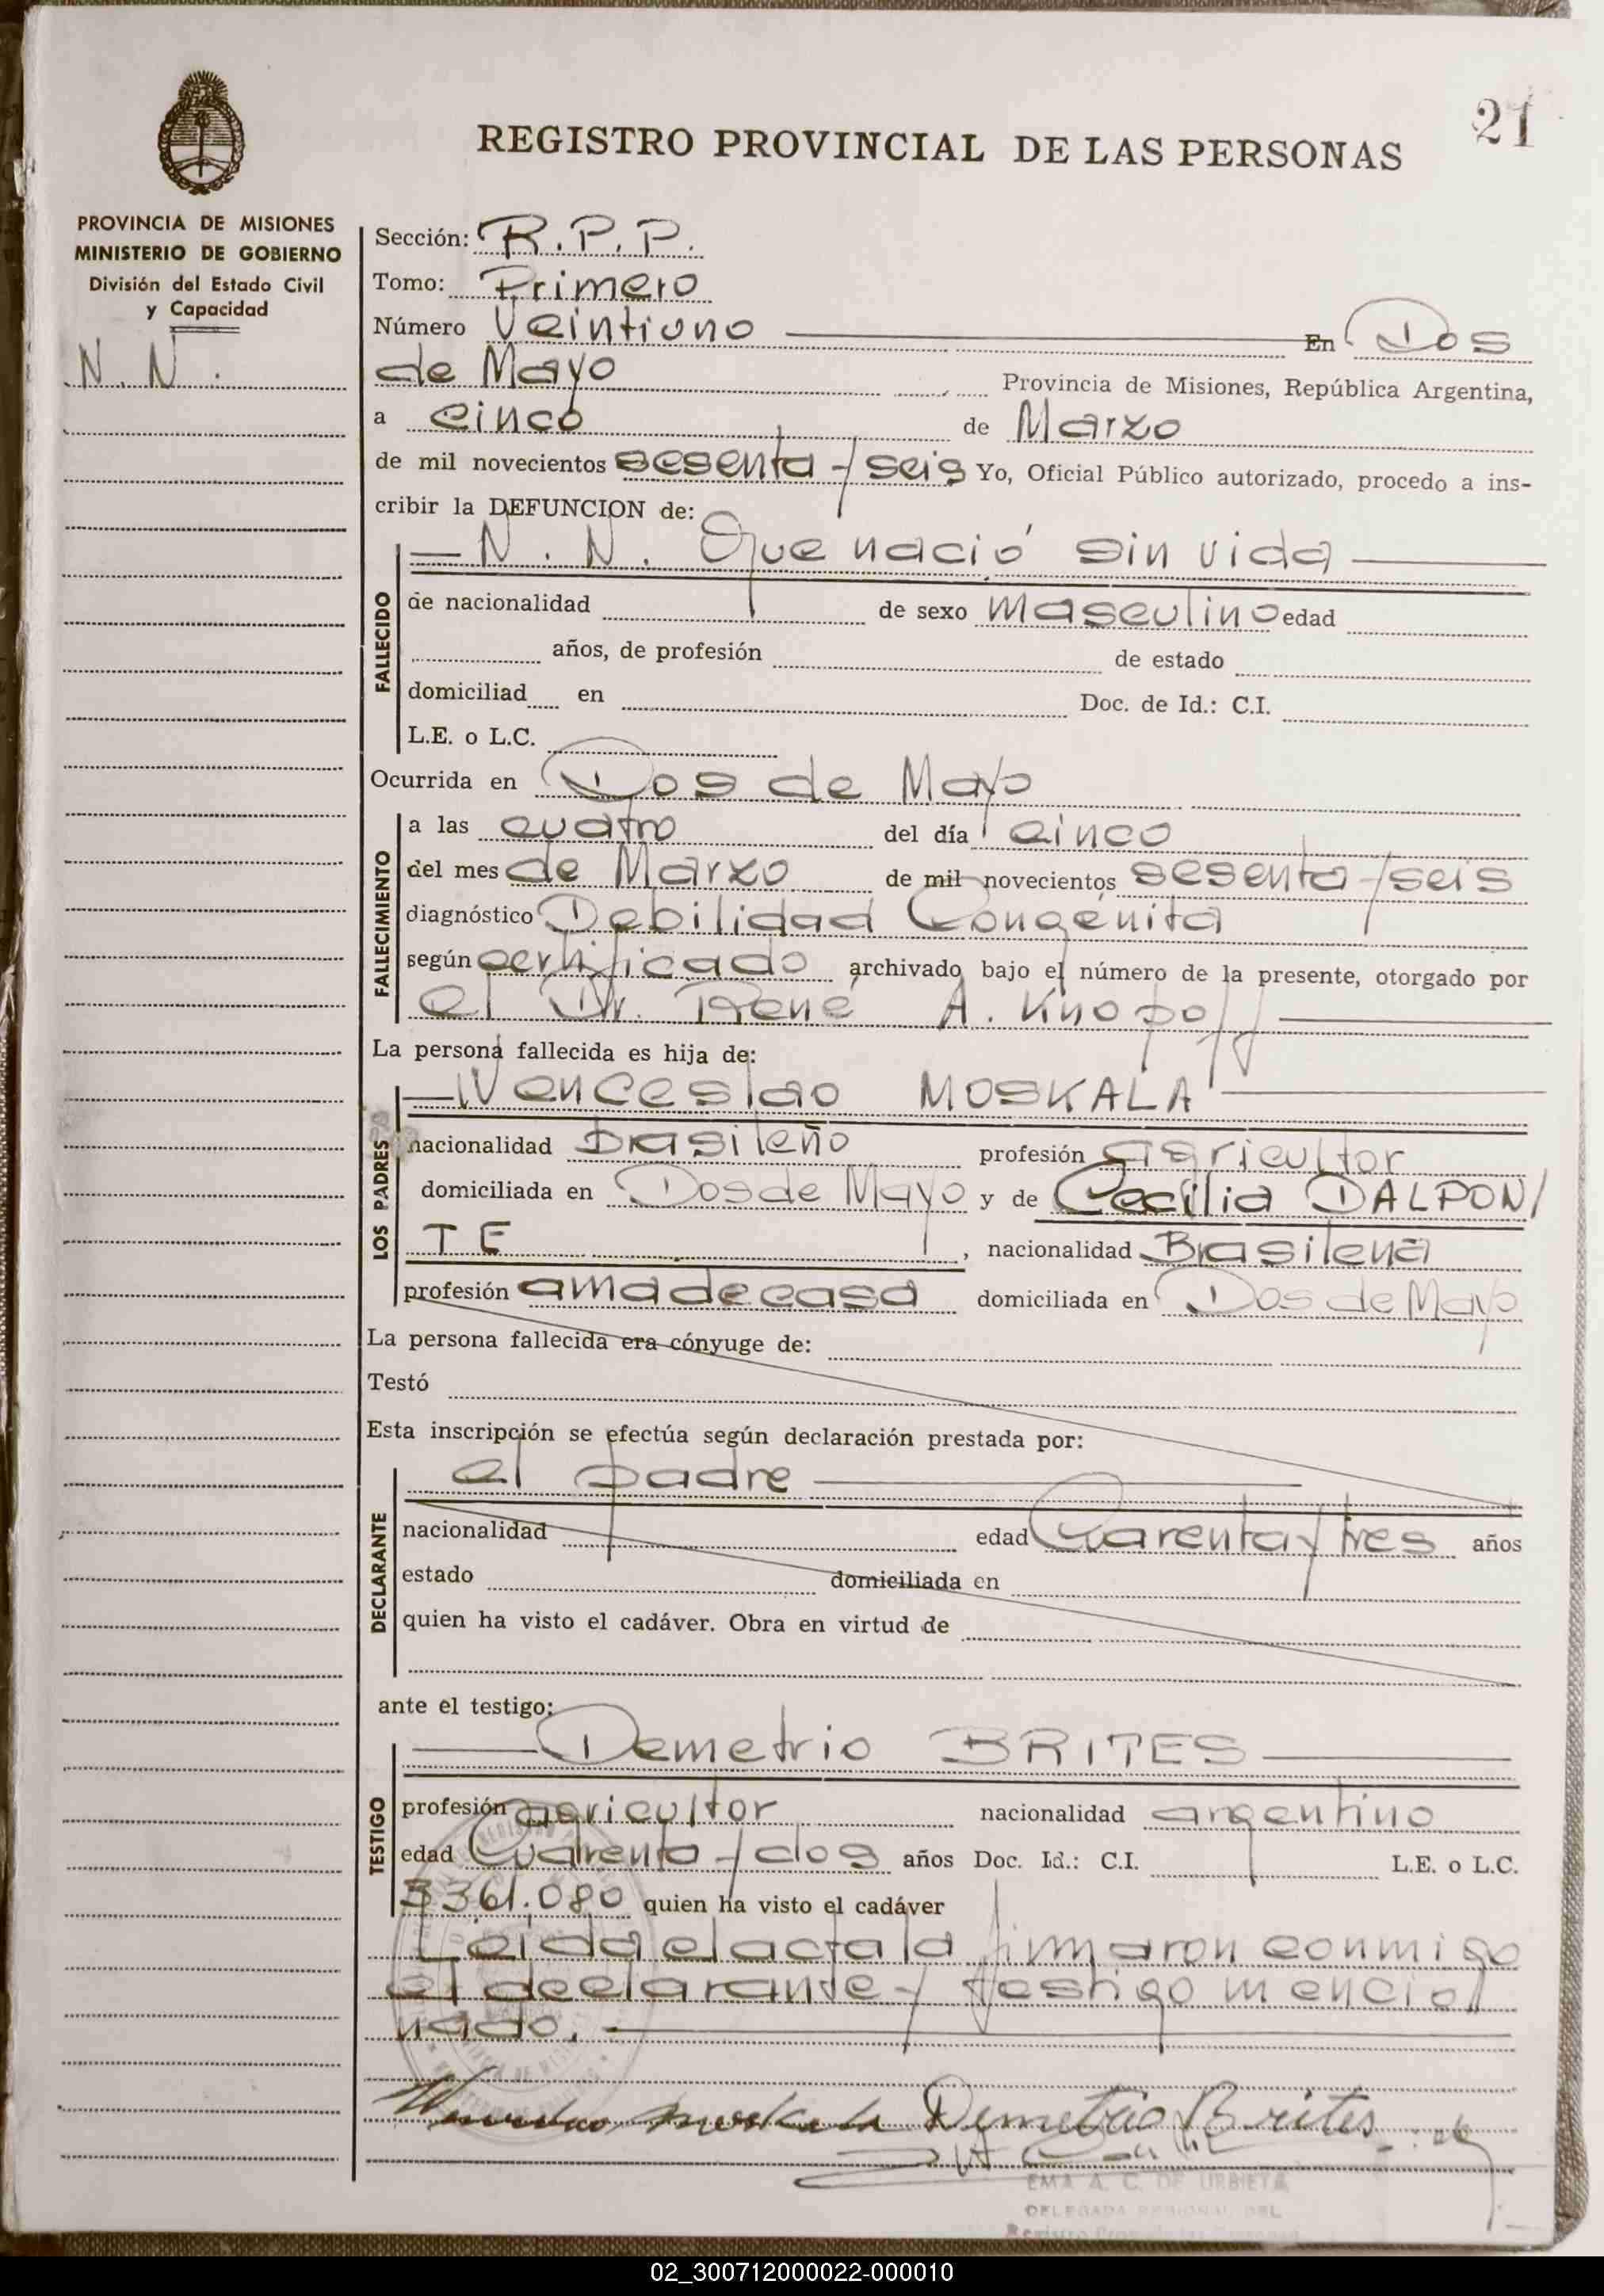 21
REGISTRO PROVINCIAL DE LAS PERSONAS
PROVINCIA DE MISIONES
MINISTERIO DE GOBIERNO
División del Estado Civil
y Capacidad
N. N.
Sección: R. P. P.
Tomo: Primero
Número Veintiuno En Dos
de Mayo Provincia de Misiones, República Argentina,
a cinco de Marzo
de mil novecientos sesenta y seis Yo, Oficial Público autorizado, procedo a ins-
cribir la DEFUNCION de:
N. N. Que nació sin vida
FALLECIDO
de nacionalidad de sexo Masculino edad
años, de profesión de estado
domiciliad en Doc. de Id.: C.I.
L.E. o L.C.
Ocurrida en Dos de Mayo
FALLECIMIENTO
a las cuatro del día cinco
del mes de Marzo de mil novecientos sesenta y seis
diagnóstico Debilidad Congénita
según certificado archivado bajo el número de la presente, otorgado por
el Dr. René A. Knopoff
La persona fallecida es hija de:
Wenceslao MOSKALA
LOS PADRES
nacionalidad Brasileño profesión agricultor
domiciliada en Dos de Mayo y de Cecilia DALPON/
TE, nacionalidad Brasileña
profesión ama de casa domiciliada en Dos de Mayo
La persona fallecida era cónyuge de:
Testó
Esta inscripción se efectúa según declaración prestada por:
el padre
DECLARANTE
nacionalidad edad Cuarenta y tres años
estado domiciliada en
quien ha visto el cadáver. Obra en virtud de
ante el testigo:
Demetrio BRITES
TESTIGO
profesión agricultor nacionalidad argentino
edad Cuarenta y dos años Doc. Id.: C.I. L.E. o L.C.
3361.080 quien ha visto el cadáver
Leida el acta la firmaron conmigo
el declarante y testigo mencio/
nado.
Wenceslao Moskala Demetrio Brites
EMA A. C. DE URBIETA
DELEGADA REGIONAL DEL
02_300712000022-000010